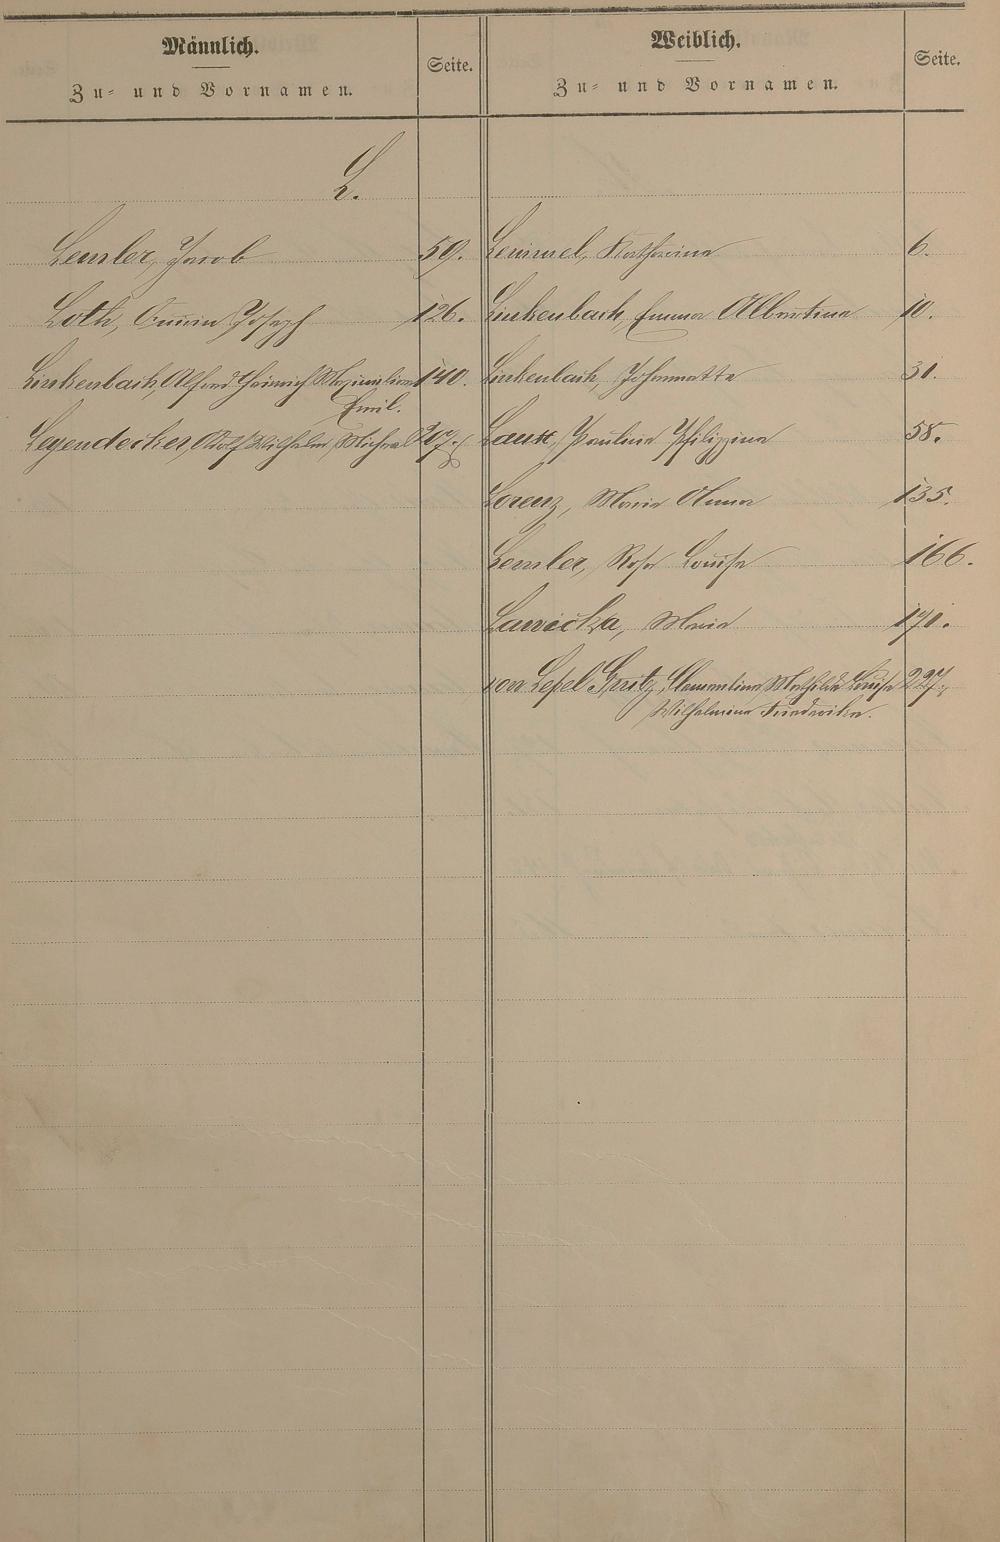 Männlich.
Zu- und Vornamen.
Seite.
Weiblich.
Zu- und Vornamen.
Seite.
L.
Lemler, Jacob 59.
Loth, Joseph 126.
Linkenbach, Alfred Heinrich Maximilian 140.
Emil.
Leyendecker, Adolf Wilhelm Michael 207.
Lemmel, Katharina 6.
Linkenbach, Emma Albertine 10.
Linkenbach, Johannette 31.
Laux, Pauline Philippine 58.
Lorenz, Maria Anna 135.
Lemler, Rosa Louise 166.
Lawicka, Maria 171.
von Lepel-Gnitz, Clementine Mathilde Louise 227.
Wilhelmine Friederike.